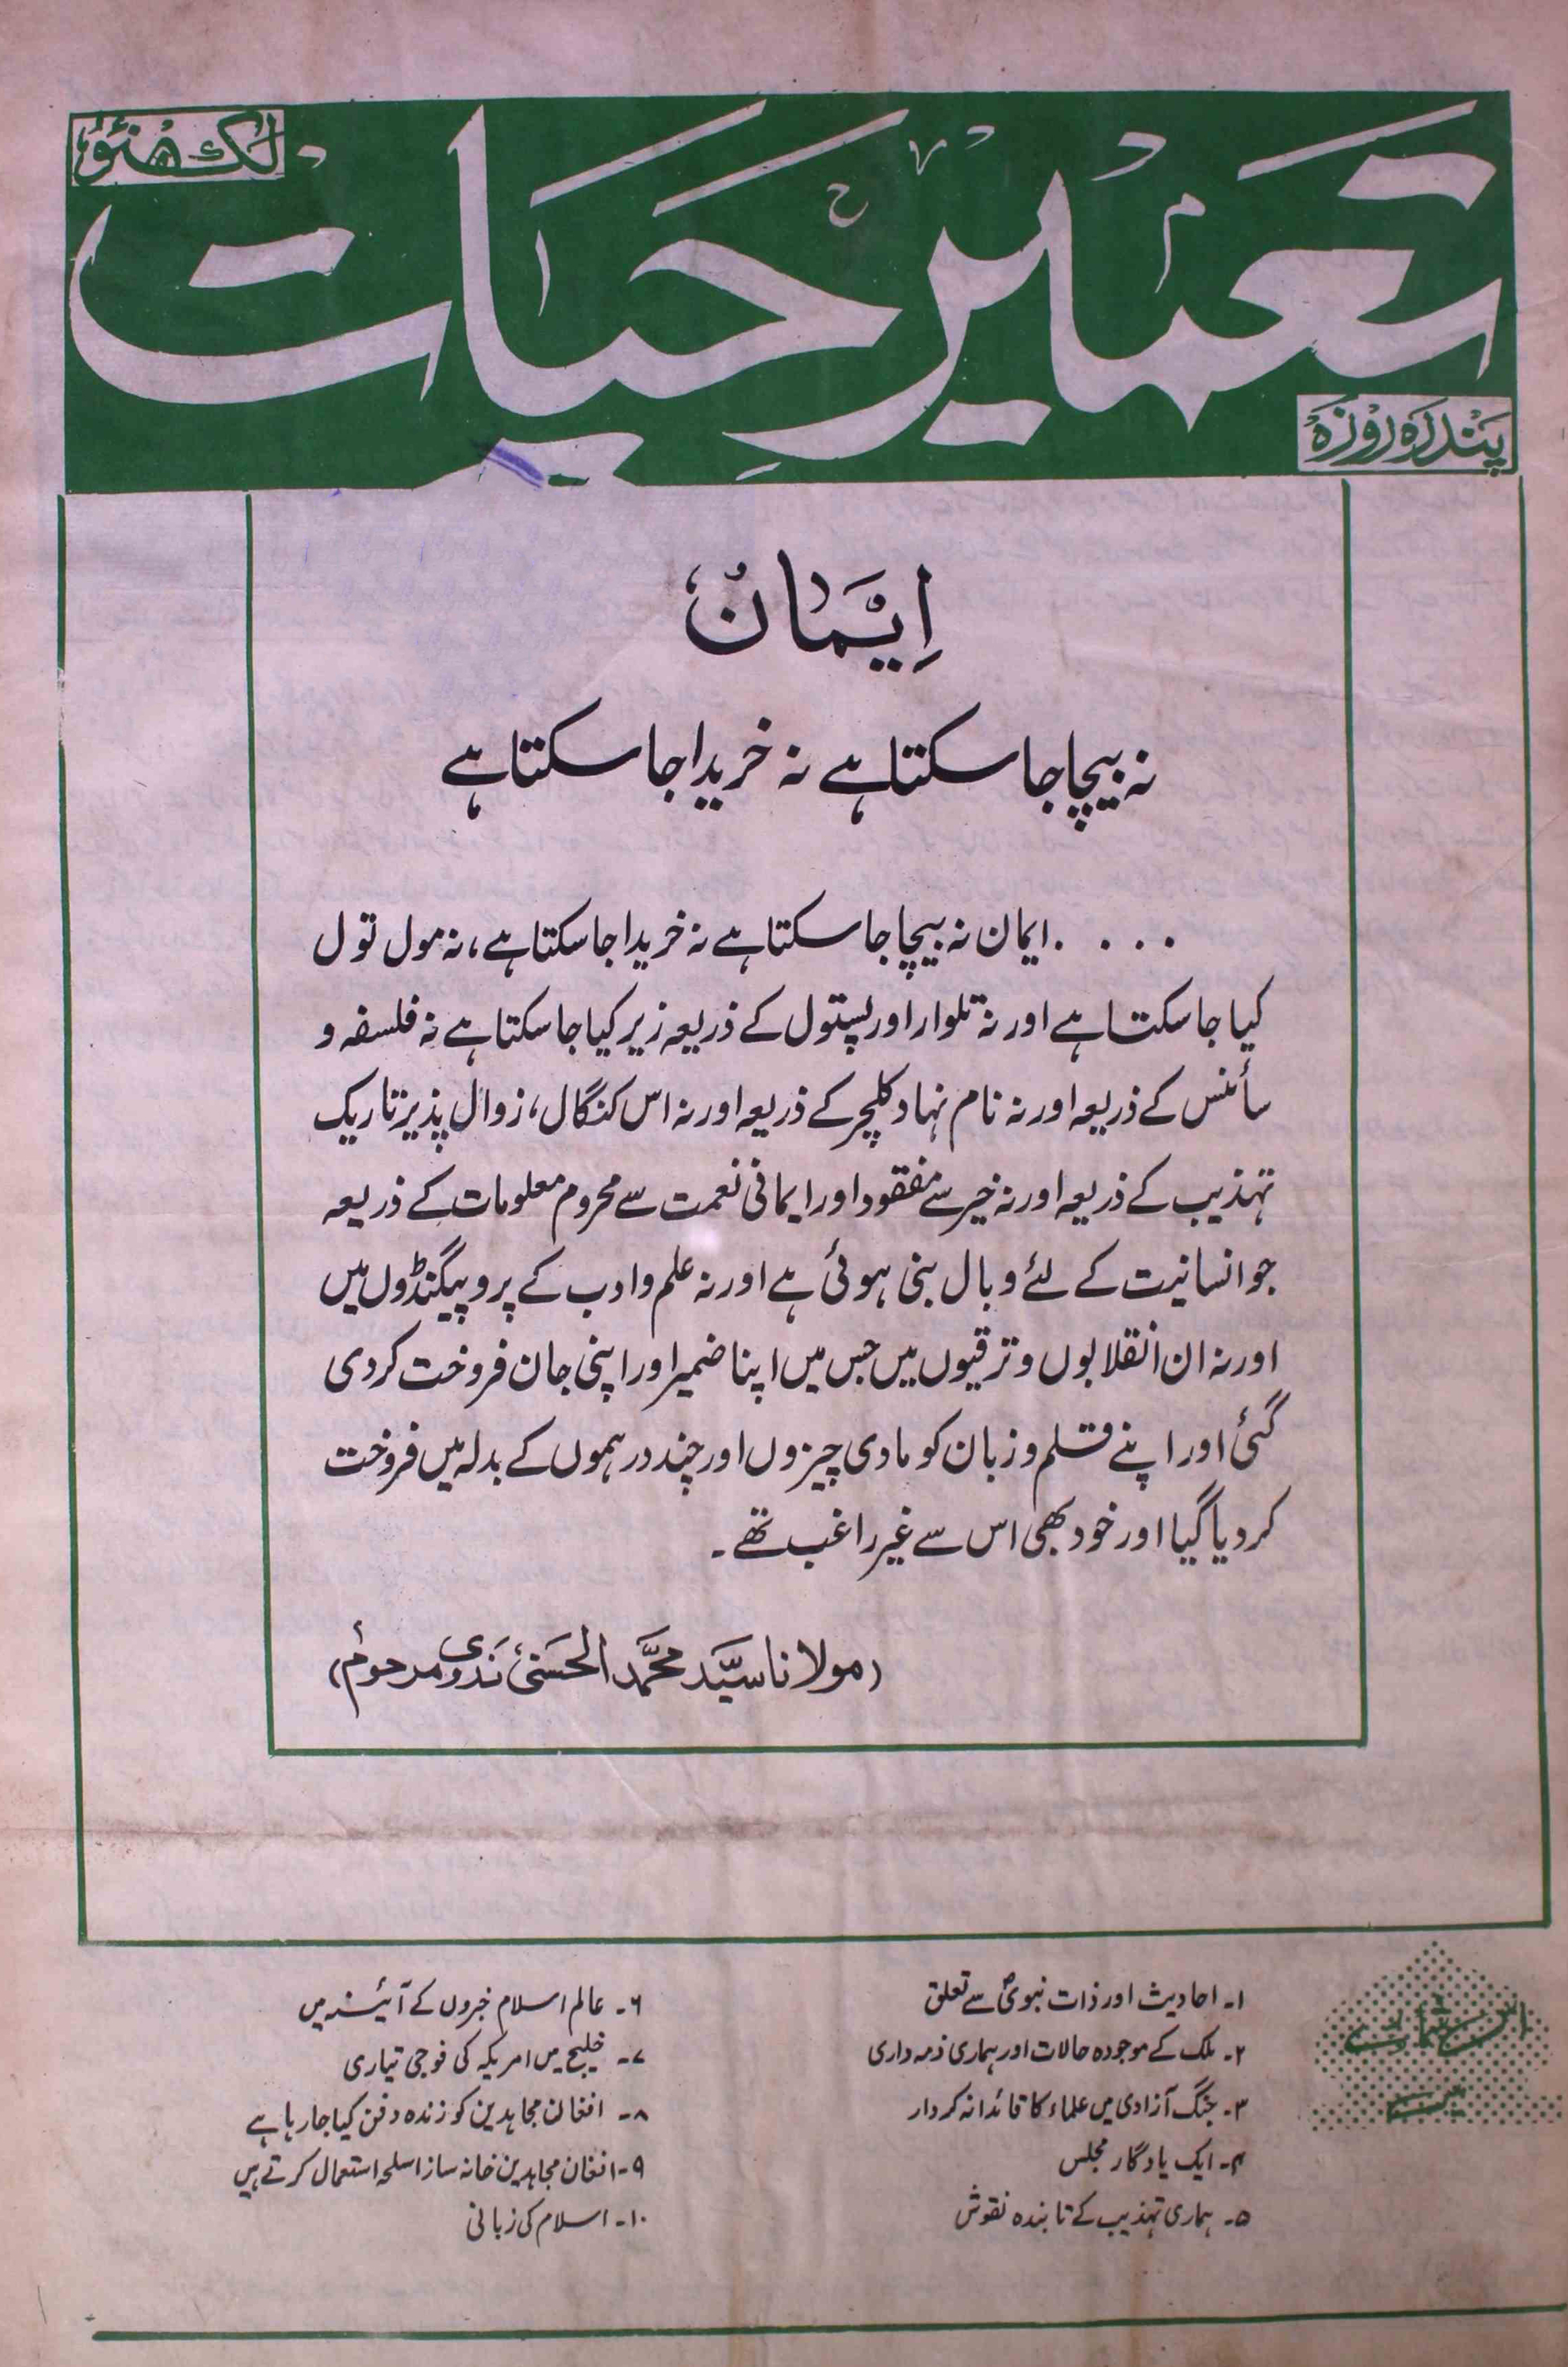 لکھنؤ
تعمیر حیات
پندرہ روزہ
اِیْمَان
نہ بیچا جا سکتا ہے نہ خریدا جا سکتا ہے
. . . . ایمان نہ بیچا جا سکتا ہے نہ خریدا جا سکتا ہے، نہ مول تول
کیا جا سکتا ہے اور نہ تلوار اور پستول کے ذریعہ زیر کیا جا سکتا ہے نہ فلسفہ و
سائنس کے ذریعہ اور نہ نام نہاد کلچر کے ذریعہ اور نہ اس کنگال، زوال پذیر تاریک
تہذیب کے ذریعہ اور نہ خیر سے مفقود اور ایمانی نعمت سے محروم معلومات کے ذریعہ
جو انسانیت کے لئے وبال بنی ہوئی ہے اور نہ علم و ادب کے پروپیگنڈوں میں
اور نہ ان انقلابوں و ترقیوں میں جس میں اپنا ضمیر اور اپنی جان فروخت کر دی
گئی اور اپنے قلم و زبان کو مادی چیزوں اور چند درہموں کے بدلہ میں فروخت
کر دیا گیا اور خود بھی اس سے غیر راغب تھے۔
(مولانا سیّد محمّد الحسنی ندوی مرحوم)
اس شمارے
میں
۱۔ احادیث اور ذات نبویؐ سے تعلق
۲۔ ملک کے موجودہ حالات اور ہماری ذمہ داری
۳۔ جنگ آزادی میں علماء کا قائدانہ کردار
۴۔ ایک یادگار مجلس
۵۔ ہماری تہذیب کے تابندہ نقوش
۶۔ عالم اسلام خبروں کے آئینہ میں
۷۔ خلیج میں امریکہ کی فوجی تیاری
۸۔ افغان مجاہدین کو زندہ دفن کیا جا رہا ہے
۹۔ افغان مجاہدین خانہ ساز اسلحہ استعمال کرتے ہیں
۱۰۔ اسلام کی زبانی